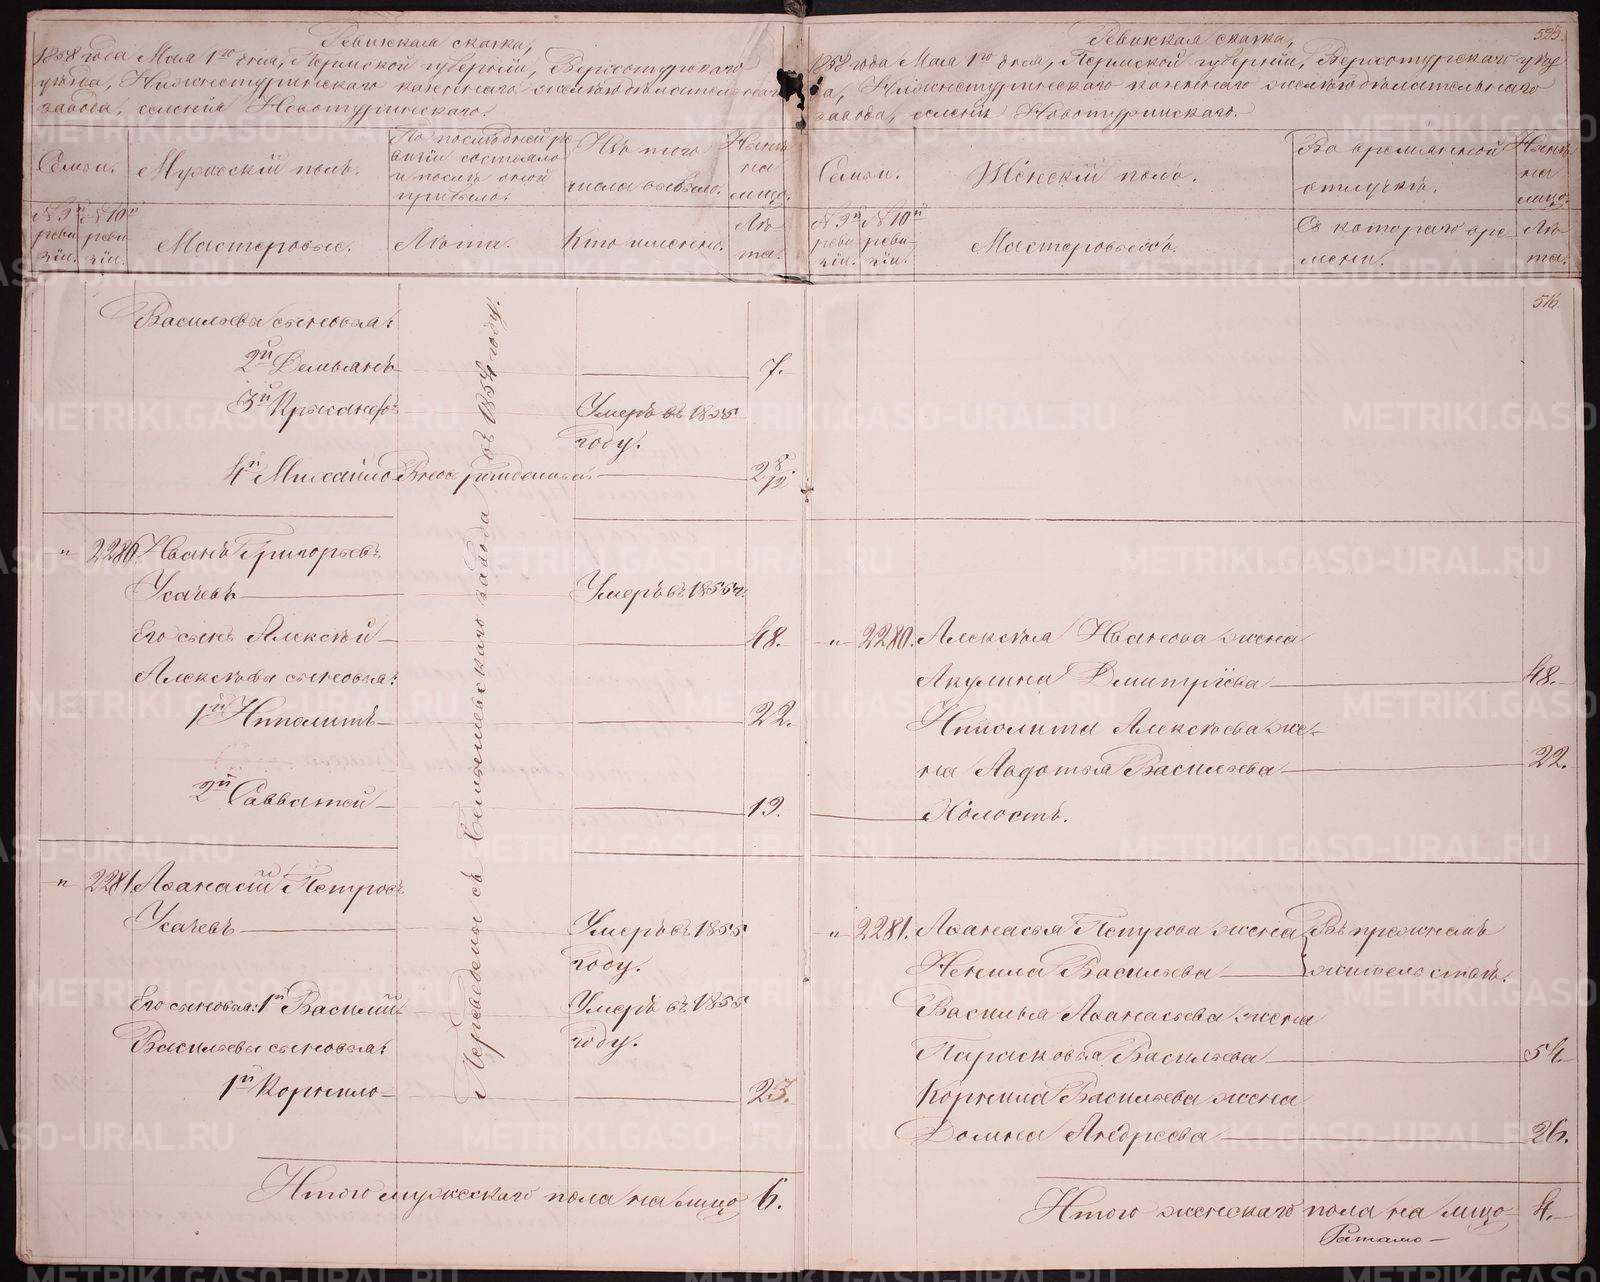 Ревижская сказка,
1858 года Мая 1го дня, Пермской губернии, Верхотурскаго
уѣзда, Нижнетуринскаго казеннаго желѣзодѣлательнаго
завода, селенія Новотуринскаго.
Семьи.
Мужескій полъ.
По послѣдней ре
визіи состояло
и послѣ оной
прибыло.
Изъ того
числа выбыло.
Нынѣ
на
лицо.
№ 9й
реви-
зіи.
№ 10й
реви-
зіи.
Мастеровые.
Лѣта.
Кто именно.
Лѣ-
та.
Васильевы сыновья:
2й Демьянъ 7.
3й Крисанфъ Умеръ въ 1855
году.
4й Михайло Вновь рожденный 2 8/12
" 2280. Иванъ Григорьевъ
Усачевъ Умеръ въ 1855 г.
Его сынъ Алексѣй 48.
Алексѣевы сыновья:
1й Ипполитъ 22.
2й Савватей 19.
" 2281. Афанасій Петровъ
Усачевъ Умеръ въ 1855
году.
Его сыновья: 1й Василій Умеръ въ 1855
Васильевы сыновья: году.
1й Корнило 23.
Переведены съ завода въ 1854 году.
Итого мужескаго пола на лицо 6.
525.
Ревижская сказка,
1858 года Мая 1го дня, Пермской губерніи, Верхотурскаго уѣз
да, Нижнетуринскаго казеннаго желѣзодѣлательнаго
завода, селенія Новотуринскаго.
Семьи.
Женскій полъ.
Во временной
отлучкѣ.
Нынѣ
на
лицо.
№ 9й
реви-
зіи.
№ 10й
реви-
зіи.
Мастеровыхъ.
Съ котораго вре-
мени.
Лѣ-
та.
516.
" 2280. Алексѣя Иванова жена
Акулина Дмитріева 48.
Ипполита Алексѣева же-
на Авдотья Васильева 22.
Холостъ.
" 2281. Афанасья Петрова жена Въ прежнемъ
Ненила Васильева жительствѣ.
Василья Афанасьева жена
Парасковья Васильева 54.
Корнила Васильева жена
Домна Андреева 26.
Итого женскаго пола на лицо 4.
METRIKI.GASO-URAL.RU